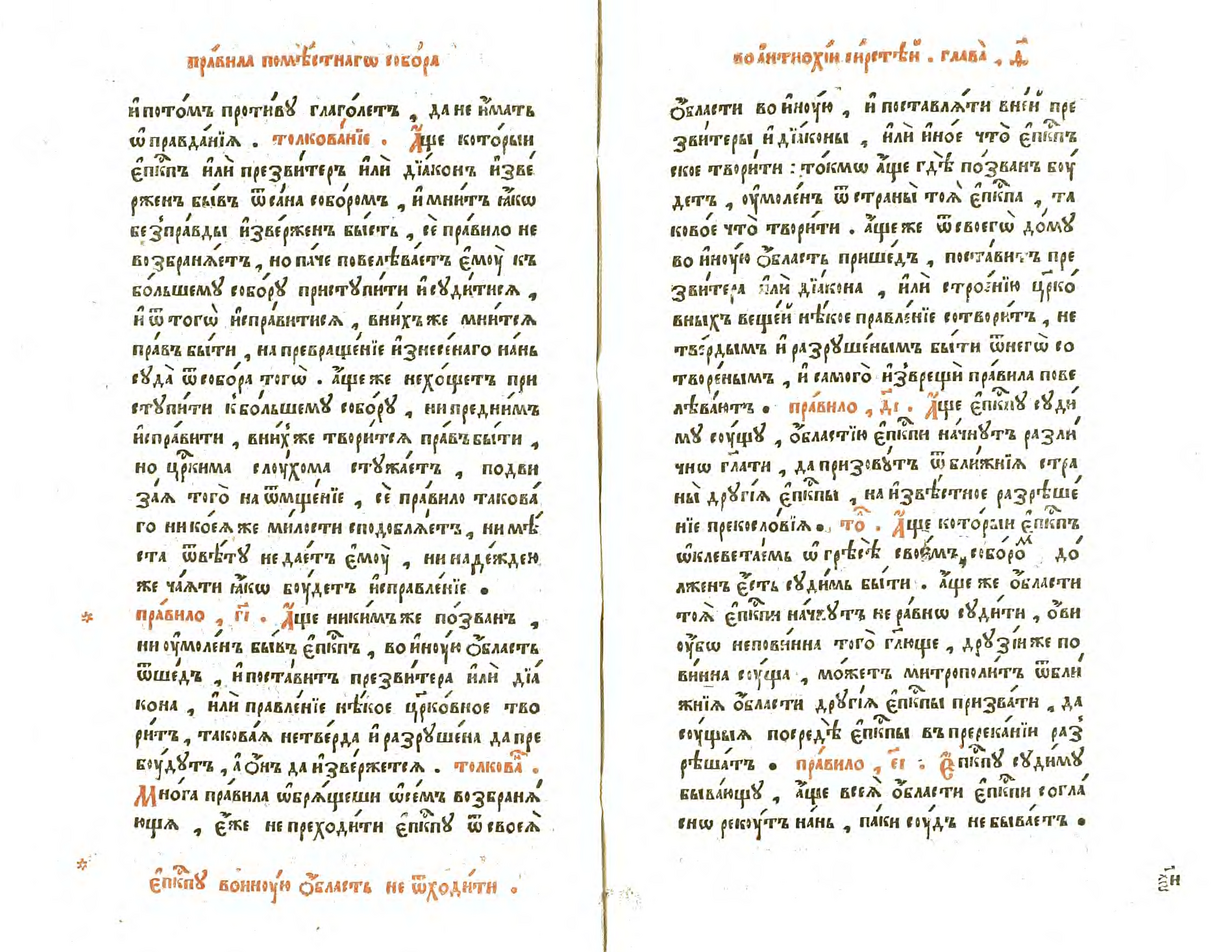 пра́вила помѣ́стнагѡ собо́ра
и҆ пото́мъ проти́вꙋ глаго́летъ , да не и҆́мать
ѡ҆правда́нїѧ . толкова́нїе . А҆́ще кото́рыи
є҆пⷭ҇кпъ и҆лѝ презви́теръ и҆лѝ дїа́конъ и҆зве́
рженъ бы́въ ѿ са́на собо́ромъ , и҆ мни́тъ ꙗ҆́кѡ
без̾ пра́вды и҆зве́рженъ бы́сть , сѐ пра́вило не
возбранѧ́етъ , но па́че повелѣва́етъ є҆моу̀ къ
бо́льшемꙋ собо́рꙋ пристꙋпи́ти и҆ сꙋди́тисѧ ,
и҆ ѿ тогѡ̀ и҆спра́витисѧ , в ни́хъ же мни́тсѧ
пра́въ бы́ти , на превраще́нїе и҆знесе́наго на́нь
сꙋда̀ ѿ собо́ра тогѡ̀ . а҆́ще же не хо́щетъ при
стꙋпи́ти к̾ бо́льшемꙋ собо́рꙋ , ни пре́дним
и҆спра́вити , в ни́хже твори́тсѧ пра́въ бы́ти ,
но цр҃кима слоу́хома стꙋжа́етъ , подви
за́ѧ того̀ на ѿмще́нїе , сѐ пра́вило такова́
го ни коеѧ́ же ми́лости сподоблѧ́етъ , ни мѣ́
ста ѿвѣ́тꙋ не дае́тъ є҆моу̀ , ни наде́ждею
же ча́ѧти ꙗ҆́кѡ боу́детъ и҆справле́нїе .
* пра́вило , г҃і . А҆́ще ники́мъ же по́званъ ,
ни оу҆моле́нъ бы́въ є҆пⷭ҇кпъ , во и҆ноу́ю ѻ҆́бласть
ѿше́дъ , и҆ поста́витъ презви́тера и҆лѝ дїа́
кона , и҆лѝ правле́нїе нѣ́кое цр҃ко́вное тво
ри́тъ , такова́ѧ нетве́рда и҆ разрꙋше́на да пре
боу́дꙋтъ , а҆ ѻ҆́нъ да и҆зве́ржетсѧ . толкова́ .
Мно́га пра́вила ѡ҆брѧ́щеши ѡ҆ се́мъ возбранѧ́
ющѧ , є҆́же не преходи́ти є҆пⷭ҇кпꙋ ѿ своеѧ̀
* є҆пⷭ҇кпꙋ во и҆ноу́ю ѻ҆́бласть не ѿходи́ти .
во а҆нтїохі́и си́рстѣй . глава̀ , д҃
ѻ҆́бласти во и҆ноу́ю , и҆ поставлѧ́ти в не́й пре
зви́теры и҆ дїа́коны , и҆лѝ и҆но́е что̀ є҆пⷭ҇кпъ
ское твори́ти : то́кмѡ а҆́ще гдѣ̀ по́званъ боу́
детъ , оу҆моле́нъ ѿ страны̀ тоѧ̀ є҆пⷭ҇кпа , та
ково́е что̀ твори́ти . а҆́ще же ѿ своегѡ̀ до́мꙋ
во и҆ноу́ю ѻ҆́бласть прише́дъ , поста́витъ пре
зви́тера и҆лѝ дїа́кона , и҆лѝ строе́нїю цр҃ко́
вныхъ веще́й нѣ́кое правле́нїе сотвори́тъ , не
тве́рдымъ и҆ разрꙋше́нымъ бы́ти ѿ него̀ со
творе́нымъ , и҆ самого̀ и҆зврещѝ пра́вила пове
лѣва́ютъ . пра́вило , д҃і . А҆́ще є҆пⷭ҇кпꙋ сꙋди́
мꙋ соу́щꙋ , ѻ҆́бластїю є҆пⷭ҇кпи начнꙋ́тъ разли́
чнѡ гл҃ати , да призовꙋ́тъ ѿ бли́жнїѧ стра
ны̀ дрꙋгі́ѧ є҆пⷭ҇кпы , на и҆звѣ́стное разрѣше́
нїе прекосло́вїѧ . то́ . А҆́ще кото́рыи є҆пⷭ҇кпъ
ѡ҆клевета́емъ ѡ҆ грѣсѣ̀ свое́мъ, собо́роⷨ до́
лженъ є҆́сть сꙋди́мъ бы́ти . а҆́ще же ѻ҆́бласти
тоѧ̀ є҆пⷭ҇кпи начнꙋ́тъ не ра́внѡ сꙋди́ти , ѻ҆́ви
оу҆́бѡ непови́нна того̀ гл҃юще , дрꙋзі́и же по
ви́нна соу́ща , мо́жетъ митрополи́тъ ѿ бли́
жнїѧ ѻ҆́бласти дрꙋгі́ѧ є҆пⷭ҇кпы призва́ти , да
соу́щыѧ посредѣ̀ є҆пⷭ҇кпы в пререка́нїи раз̾
рѣша́тъ . пра́вило , є҃і . Є҆пⷭ҇кпꙋ сꙋди́мꙋ
быва́ющꙋ , а҆́ще всеѧ̀ ѻ҆́бласти є҆пⷭ҇кпи согла́
снѡ рекоу́тъ на́нь , па́ки соу́дъ не быва́етъ .